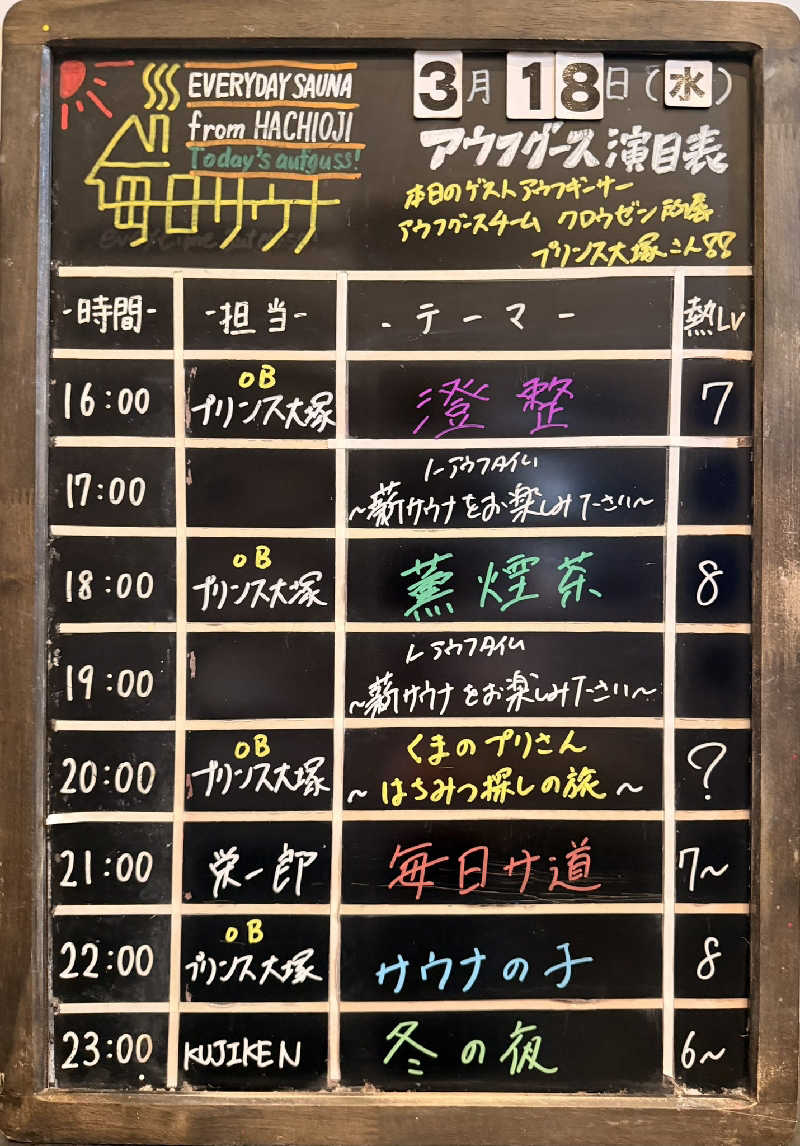 EVERYDAY SAUNA
from HACHIOJI
Today's aufguss!
毎日サウナ
3月18日(水)
アウフグース演目表
本日のゲストアウフギーサー
アウフグースチーム クロウゼン所属
プリンス大塚さん
-時間- -担当- -テーマ- 熱LV
16:00 OB プリンス大塚 澄整 7
17:00 ノーアウフタイム
～薪サウナをお楽しみ下さい～
18:00 OB プリンス大塚 薫煙茶 8
19:00 ノーアウフタイム
～薪サウナをお楽しみ下さい～
20:00 OB プリンス大塚 くまのプリさん
～はちみつ探しの旅～ ?
21:00 栄一郎 毎日サ道 7～
22:00 OB プリンス大塚 サウナの子 8
23:00 KUJIKEN 冬の夜 6～